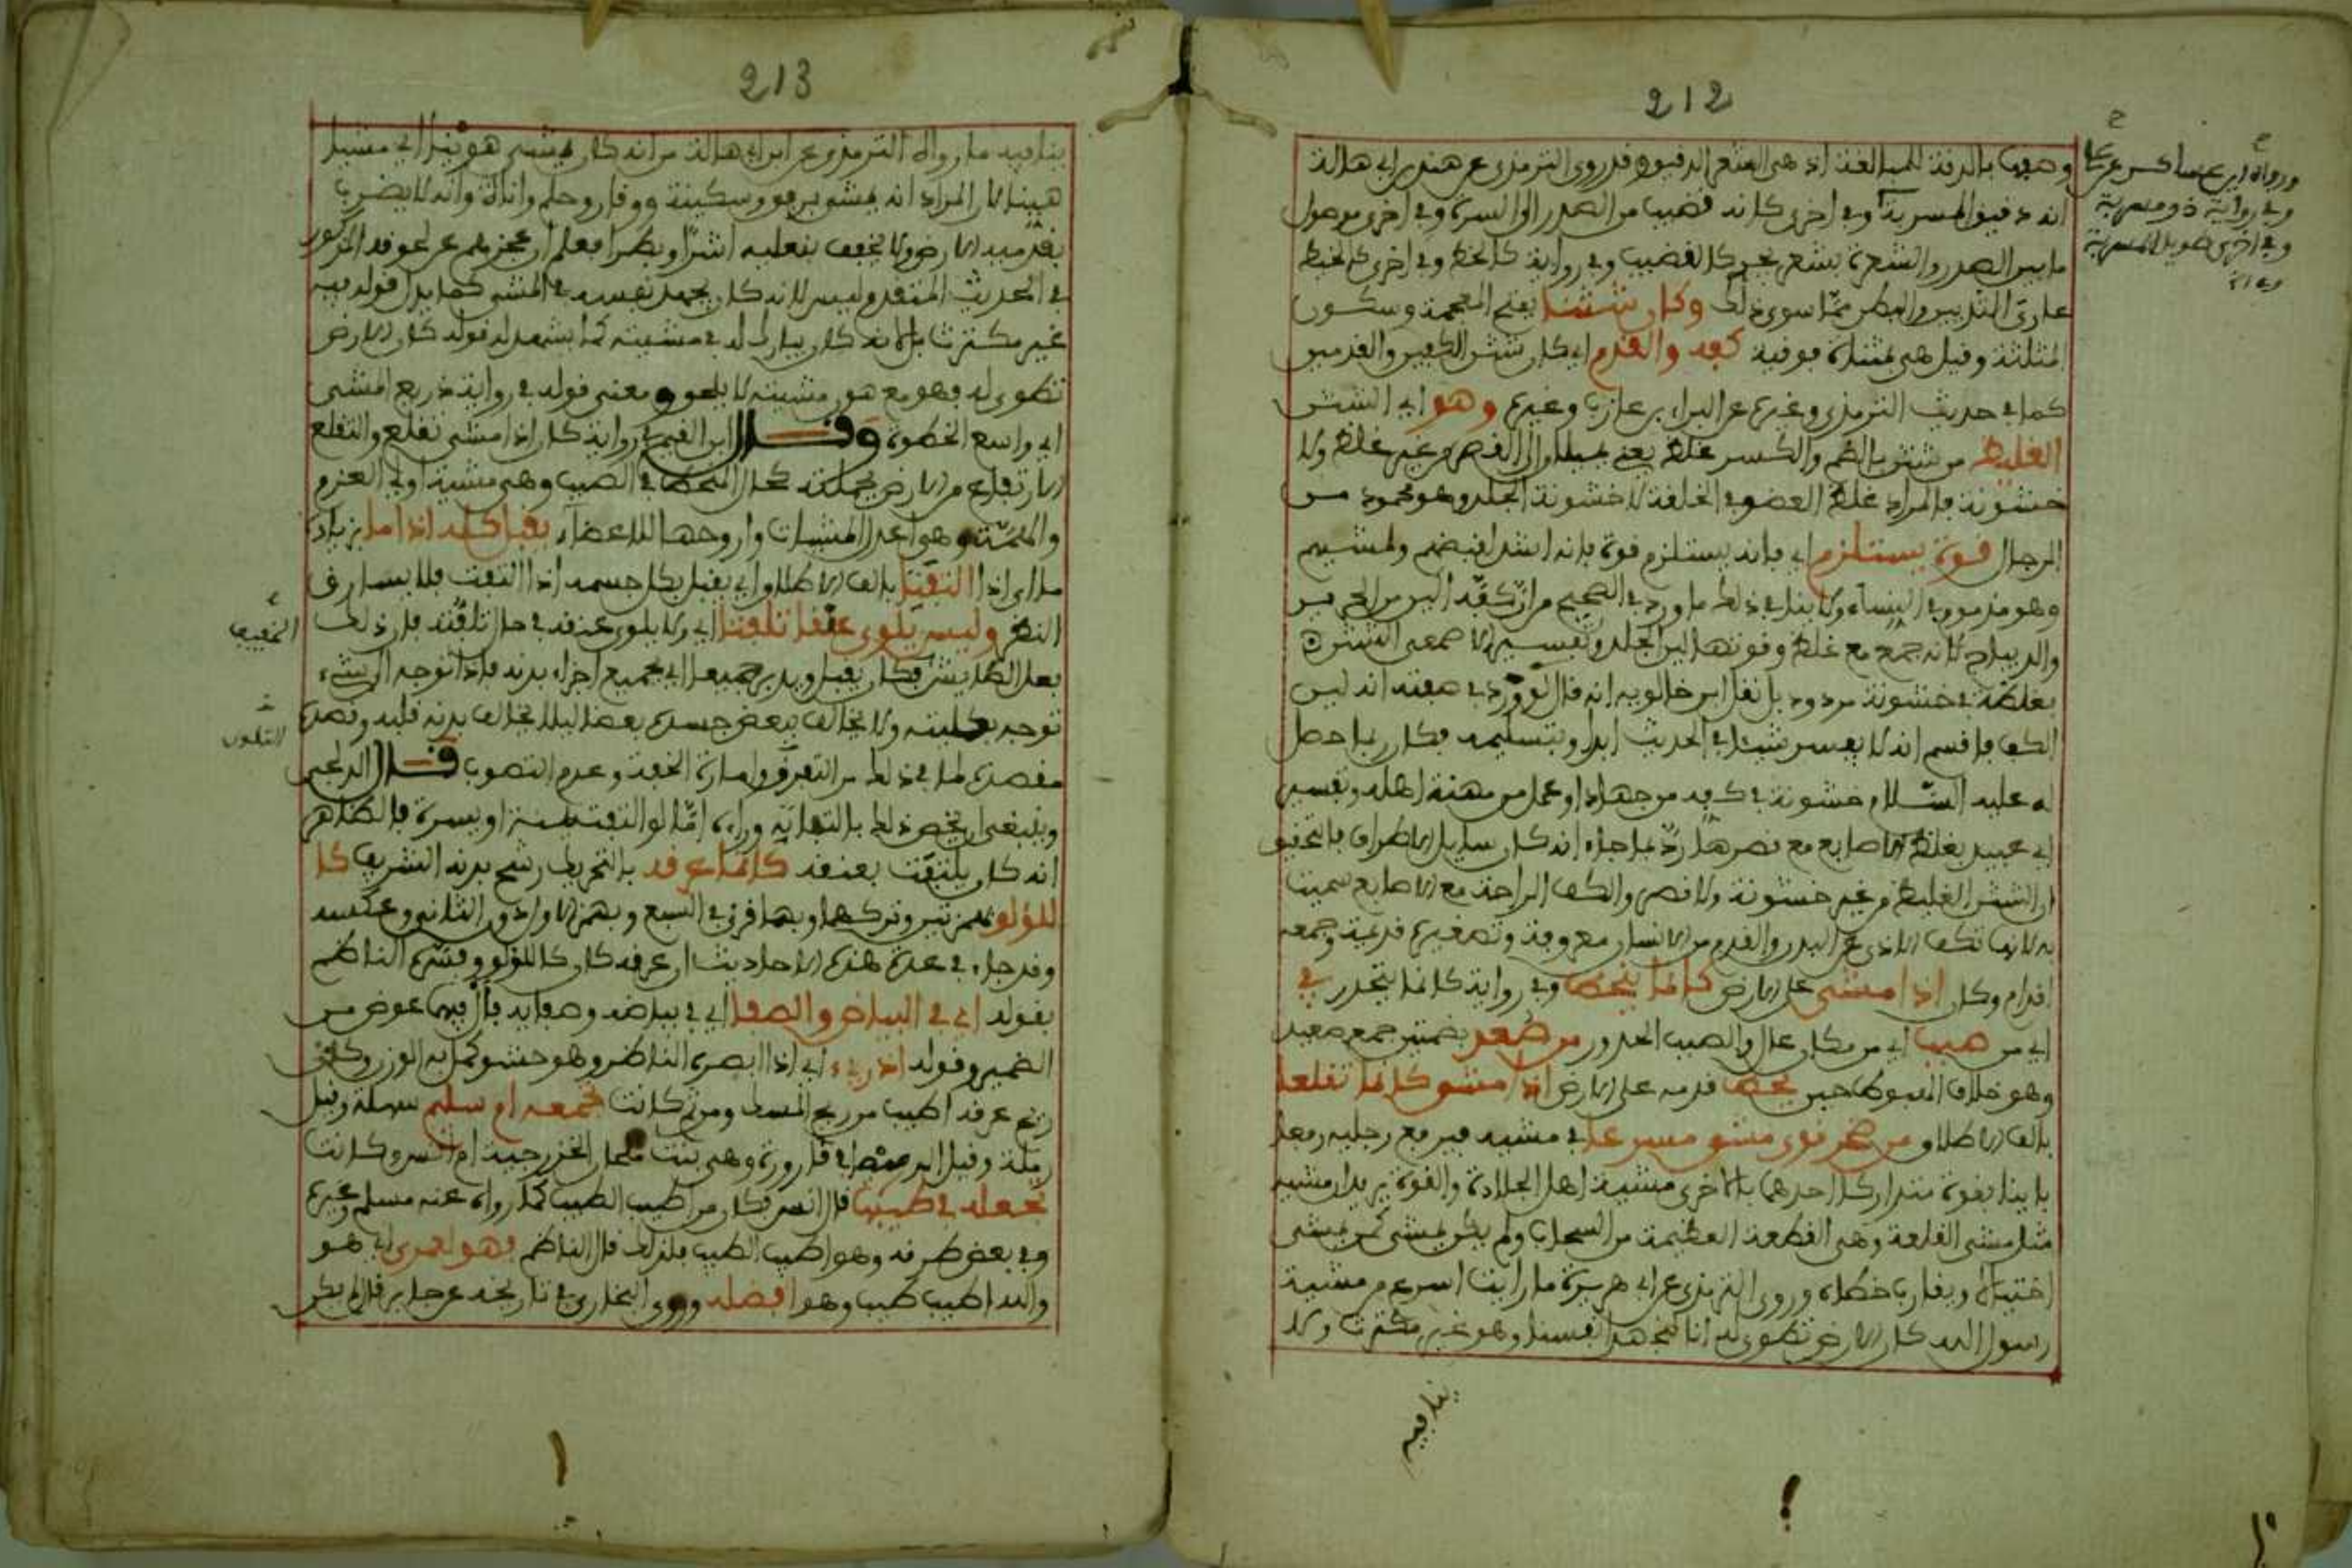 212
وصفها بالدقة للمبالغة اذ هي الشعر الدقيق وقد روى الترمذي عن هند بن ابي هالة
انه دقيق المسربة وفي اخرى كانه قضيب من الصدر الى السرة وفي اخرى موصول
ما بين الصدر والسرة بشعر يجري كالقضيب وفي رواية كالخط وفي اخرى كالخيط
عاري الثديين والبطن مما سوى ذلك وكان شثنا بفتح المعجمة وسكون
المثلثة وقيل هي مثناة فوقية كفه والقدم اي كان شثن الكفين والقدمين
كما في حديث الترمذي وغيره عن البراء بن عازب وغيره وهو اي الشثن
الغليظ من شثن بالضم والكسر غلظ يعني يميلان الى القصر من غير غلظ ولا
خشونة فالمراد غلظ العضو في الخلقة لا خشونة الجلد وهو محمود من
الرجال قوة يستلزم اي فانه يستلزم قوة فانه اشد لقبضهم ولمشيهم
وهو مذموم في النساء ولا ينافي ذلك ما ورد في الصحيح من ان كفه الين من الحرير
والديباج لانه جمع مع غلظ وقوتها لين الجلد وتفسير الاصمعي الشثن
بغلظة في خشونة مردود بل نقل ابن خالويه انه قال لو ورد في صفته انه لين
الكف فاقسم انه لا يفسر شيئا في الحديث ابدا وبتسليمه فكان ربما حصل
له عليه السلام خشونة في كفه من جهاد او عمل من مهنة اهله وتفسير
ابي عبيد بغلظ الاصابع مع قصرها رد بما جاء انه كان سايل الاطراف فالتحقيق
ان الشثن الغليظ من غير خشونة ولا قصر والكف الراحة مع الاصابع سميت
به لانها تكف الاذى عن البدن والقدم من الانسان معروفة وتصغيره قديمة وجمعه
اقدام وكان اذا مشى على الارض كانما ينحط وفي رواية كانما ينحدر في
اي من صبب اي من مكان عال والصبب الحدور من صعد بضمتين جمع صعيد
وهو خلاف الهبوط حين يحط قدمه على الارض اذا مشى كانما تقلعا
بالف الاطلاق من صخر قوي مشي مسرعا في مشيه فيرفع رجليه رفعا
باينا بقوة متداركا احدهما بالاخرى مشية اهل الجلادة والقوة يريد ان مشيه
مثل مشي القلعة وهي القطعة العظيمة من السحاب ولم يكن يمشي كمن يمشي
اختيالا ويقارب خطاه وروى الترمذي عن ابي هريرة ما رايت اسرع من مشية
رسول الله كان الارض تطوى له انا لنجهد انفسنا وهو غير مكترث ولا
ينافيه
ورواه ابن عساكر عن علي
وفي رواية ذو مسربة
وفي اخرى طويل المسربة
213
ينافيه ما رواه الترمذي عن ابن ابي هالة من انه كان يمشي هونا اي مشيا
هينا لان المراد انه يمشي برفق وسكينة ووقار وحلم واناة وانه لا يضرب
بقدميه الارض ولا يخفق بنعليه اشرا وبطرا فعلم ان عجزهم عن لحوقه المذكور
في الحديث المتقدم ليس لانه كان يجهد نفسه في المشي كما يدل قوله فيه
غير مكترث بل لانه كان يبارك له في مشيته كما يشهد له قوله كان الارض
تطوى له فهو مع هون مشيته لا يلحق ومعنى قوله في رواية ذريع المشي
اي واسع الخطوة وقال ابن القيم في رواية كان اذا مشى تقلع والتقلع
الارتفاع من الارض بجملته كحال المنحط في الصبب وهي مشية اولي العزم
والهمة وهي اعدل المشيات واروحها للاعضاء يقبل كله اذا ما بزيادة
ما اي اذا التفتا بالف الاطلاق اي يقبل بكل جسمه اذا التفت فلا يسارق
النظر وليس يلوي عنقا تلفتا اي ولا يلوي عنقه في حال تلفته فان ذلك
فعل الطايش فكان يقبل ويدبر جميعا اي بجميع اجزاء بدنه فاذا توجه الى شيء
توجه بكليته ولا يخالف ببعض جسده بعضا ليلا يخالف بدنه قلبه وقصده
مقصده لما في ذلك من التفرق وامارة الخفة وعدم التصون قال الدلجي
وينبغي ان يخص ذلك بالتفاته وراءه اما لو التفت يمنة او يسرة فالظاهر
انه كان يلتفت بعنقه كانما عرقه بالتحريك رشح بدنه الشريف كا
للؤلؤ بهمزتين وتركهما وبهما قرئ في السبع وبهمز الاول دون الثاني وعكسه
وقد جاء في عدة هذه الاحاديث ان عرقه كان كاللؤلؤ وفسره الناظم
بقوله اي في البياض والصفا اي في بياضه وصفايه فال فيهما عوض من
الضمير وقوله اذ ريء اي اذا ابصره الناظر وهو حشو كمل به الوزن وكان
ريح عرقه اطيب من ريح المسك ومن ثم كانت تجمعه ام سليم سهلة وقيل
رملة وقيل الرميصا في قارورة وهي بنت ملحان الخزرجية ام انس وكانت
تجعله في طيبها قال انس فكان من اطيب الطيب كما رواه عنه مسلم وغيره
وفي بعض طرقه وهو اطيب الطيب فلذلك قال الناظم فهو لعمري اي هو
والله اطيب طيب وهو افضله وروى البخاري في تاريخه عن جابر قال لم يكن
التخفيف
التلون